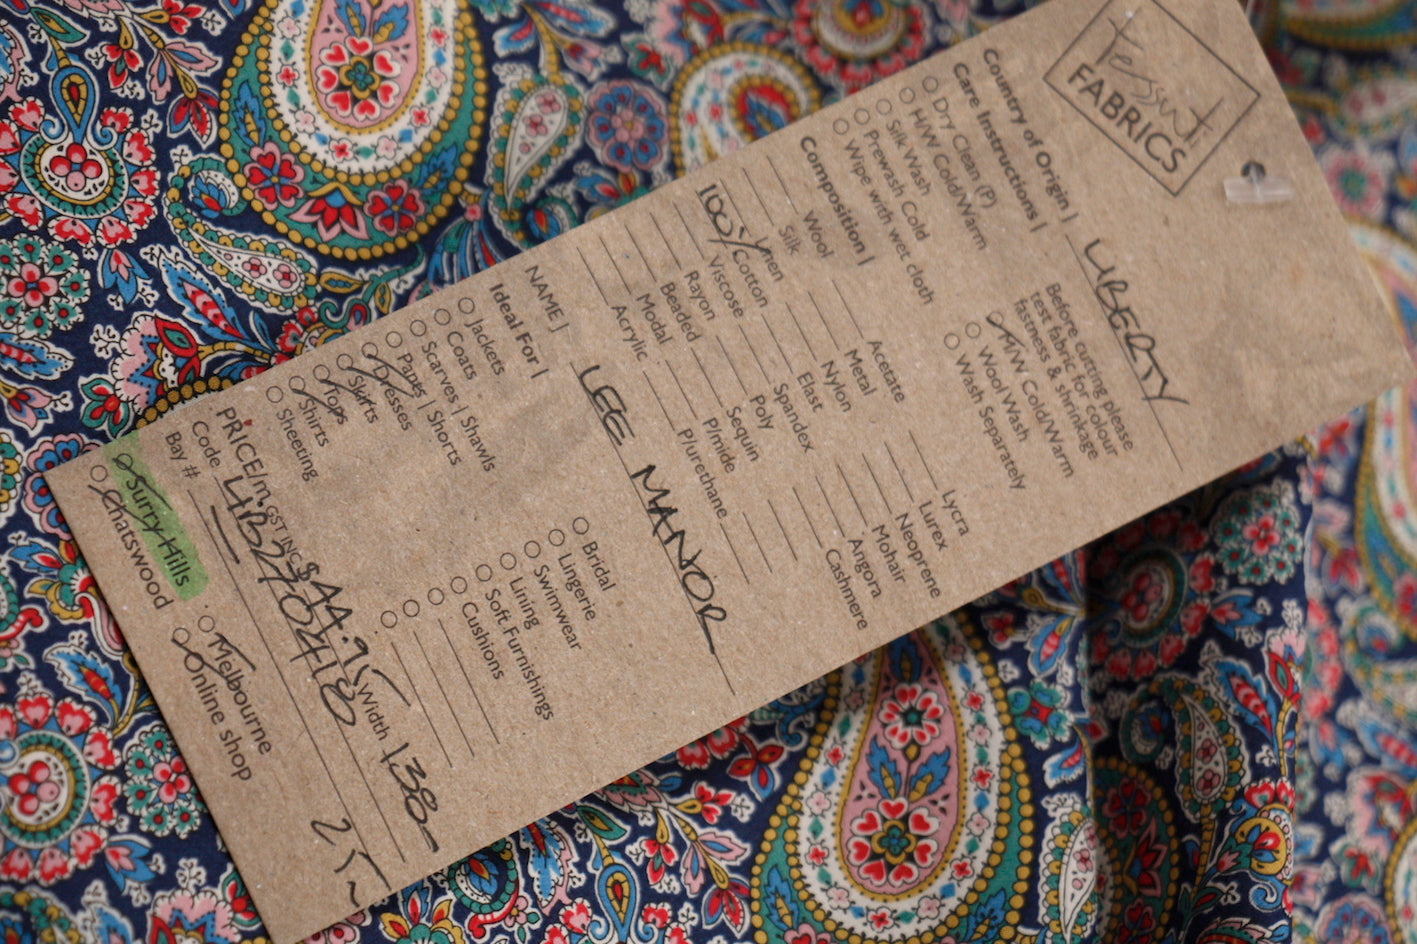 Tessuti
FABRICS
Country of Origin | LIBERTY
Care Instructions |
Dry Clean (P)
H/W Cold/Warm
Silk Wash
Prewash Cold
Wipe with wet cloth
Before cutting please
test fabric for colour
fastness & shrinkage
M/W Cold/Warm
Wool Wash
Wash Separately
Composition |
Wool
Silk
Linen
100% Cotton
Viscose
Rayon
Beaded
Modal
Acrylic
Acetate
Metal
Nylon
Elast
Spandex
Poly
Sequin
P/mide
P/urethane
Lycra
Lurex
Neoprene
Mohair
Angora
Cashmere
NAME | LEE MANOR
Ideal For |
Jackets
Coats
Scarves | Shawls
Pants | Shorts
Dresses
Skirts
Tops
Shirts
Sheeting
Bridal
Lingerie
Swimwear
Lining
Soft Furnishings
Cushions
PRICE/m GST INC $44.95 Width 138
Code LIB270418
Bay #
Surry Hills
Chatswood
Melbourne
Online shop